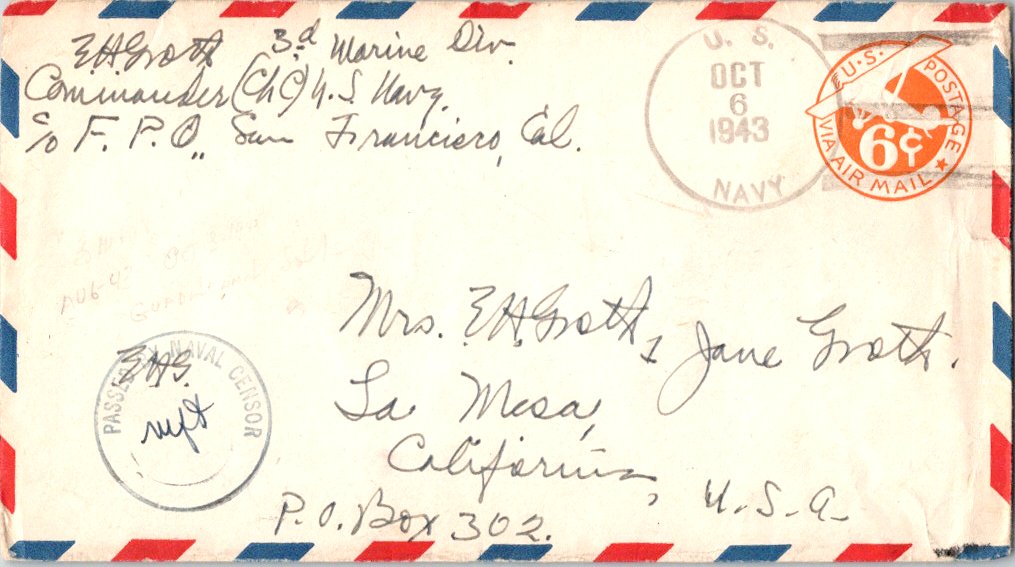 E.H. Groth 3d Marine Div.
Commander (ChC) U.S. Navy.
c/o F. P. O., San Francisco, Cal.
U. S.
OCT
6
1943
NAVY
U.S. POSTAGE
6¢
VIA AIR MAIL
AUG-43
Mrs. E.H. Groth, & Jane Groth.
La Mesa,
California, U.S.A.
P.O. Box 302.
PASSED BY NAVAL CENSOR
E.H.G.